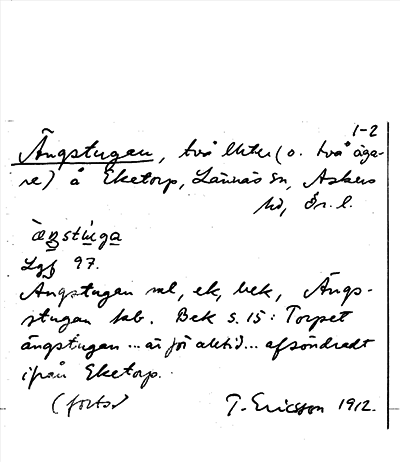 1-2
Ängstugan, två lhter (o. två äga-
re) å Eketorp, Lännäs sn, Askers
hd, Ör. l.
ängstùga
Lgf 97.
Ängstugan ml, ek, bek, Ängs-
stugan hab. Bek s. 15: Torpet
ängstugan ... är för alltid ... afsöndradt
ifrån Eketorp.
(forts.)
T. Ericsson 1912.